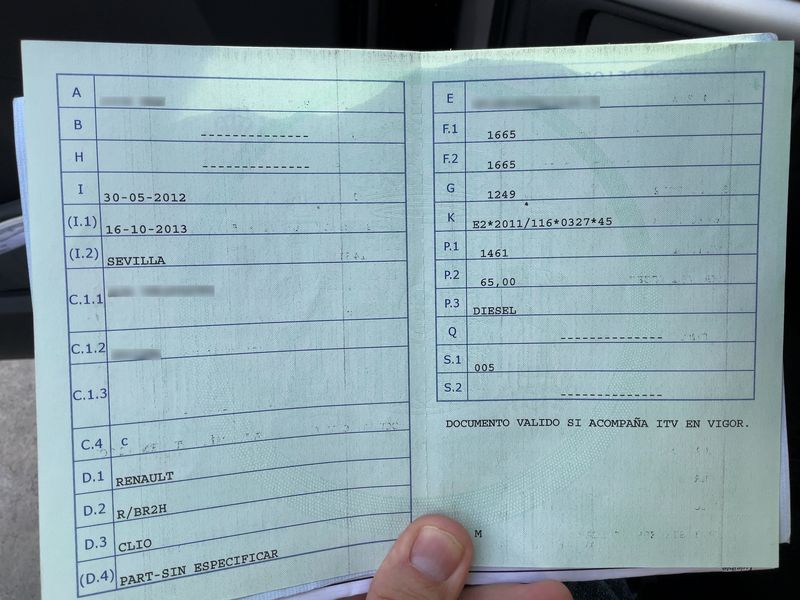 A
B ------------
H ------------
I 30-05-2012
(I.1) 16-10-2013
(I.2) SEVILLA
C.1.1
C.1.2
C.1.3
C.4 C
D.1 RENAULT
D.2 R/BR2H
D.3 CLIO
(D.4) PART-SIN ESPECIFICAR
E
F.1 1665
F.2 1665
G 1249
K E2*2011/116*0327*45
P.1 1461
P.2 65,00
P.3 DIESEL
Q ------------
S.1 005
S.2 ------------
DOCUMENTO VALIDO SI ACOMPAÑA ITV EN VIGOR.
M